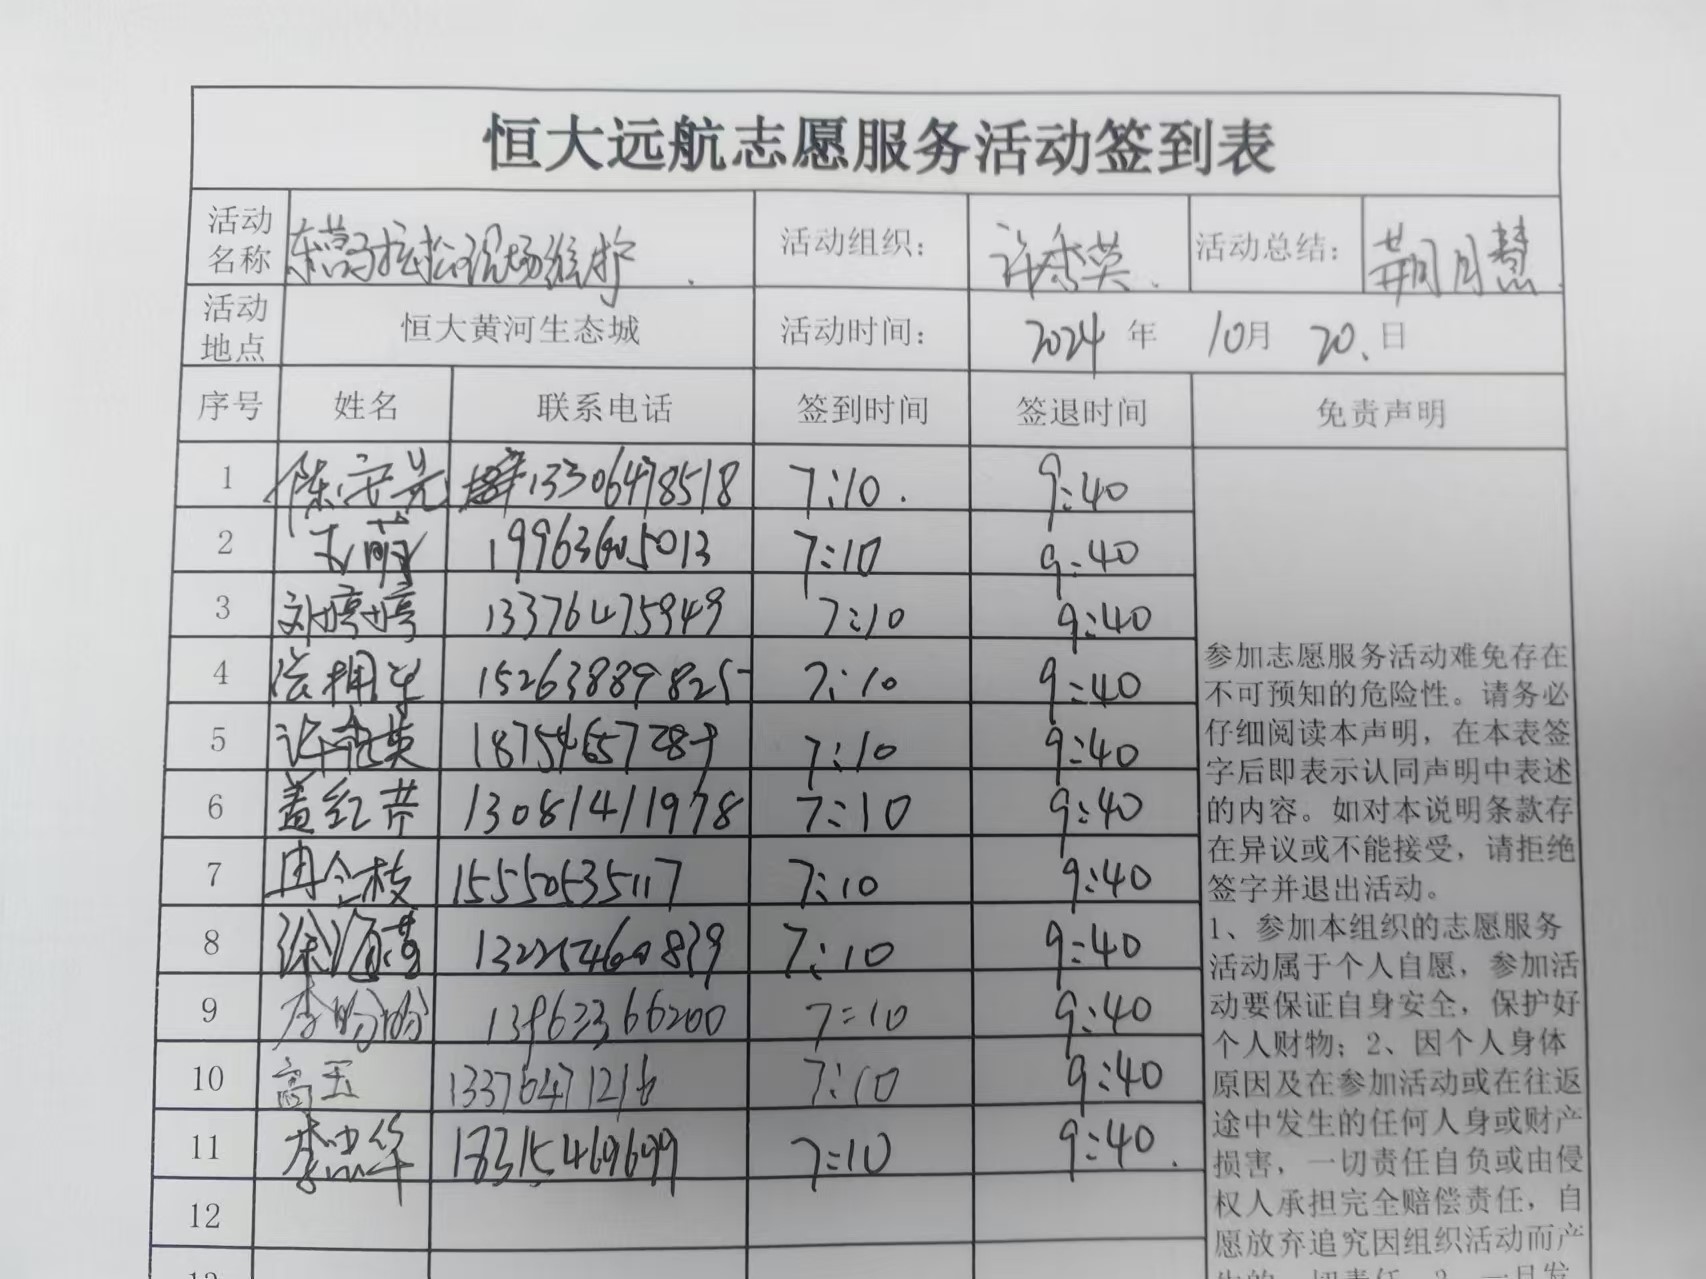 恒大远航志愿服务活动签到表
活动名称 东营马拉松现场维护 活动组织： 许秀英 活动总结： 荆月慧
活动地点 恒大黄河生态城 活动时间： 2024 年 10月 20 日
序号 姓名 联系电话 签到时间 签退时间 免责声明
1 陈安芳 13306478518 7:10 9:40
2 7:10 9:40
3 刘婷婷 13376475949 7:10 9:40
4 15263889825 7:10 9:40
5 许秀英 7:10 9:40
6 盖红芹 13081411978 7:10 9:40
7 15550535117 7:10 9:40
8 7:10 9:40
9 李盼盼 13963366200 7:10 9:40
10 高玉 13376471216 7:10 9:40
11 李忠华 7:10 9:40
12
13
参加志愿服务活动难免存在
不可预知的危险性。请务必
仔细阅读本声明，在本表签
字后即表示认同声明中表述
的内容。如对本说明条款存
在异议或不能接受，请拒绝
签字并退出活动。
1、参加本组织的志愿服务
活动属于个人自愿，参加活
动要保证自身安全，保护好
个人财物；2、因个人身体
原因及在参加活动或在往返
途中发生的任何人身或财产
损害，一切责任自负或由侵
权人承担完全赔偿责任，自
愿放弃追究因组织活动而产